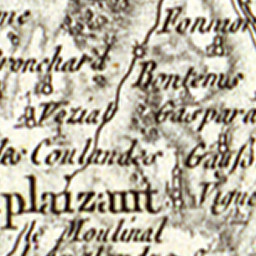 Fonmor
ronchard
Bontenus
Veziat
Gaspara
les Coulandes
Gauss
plaizant
Vigue
le Moulinal